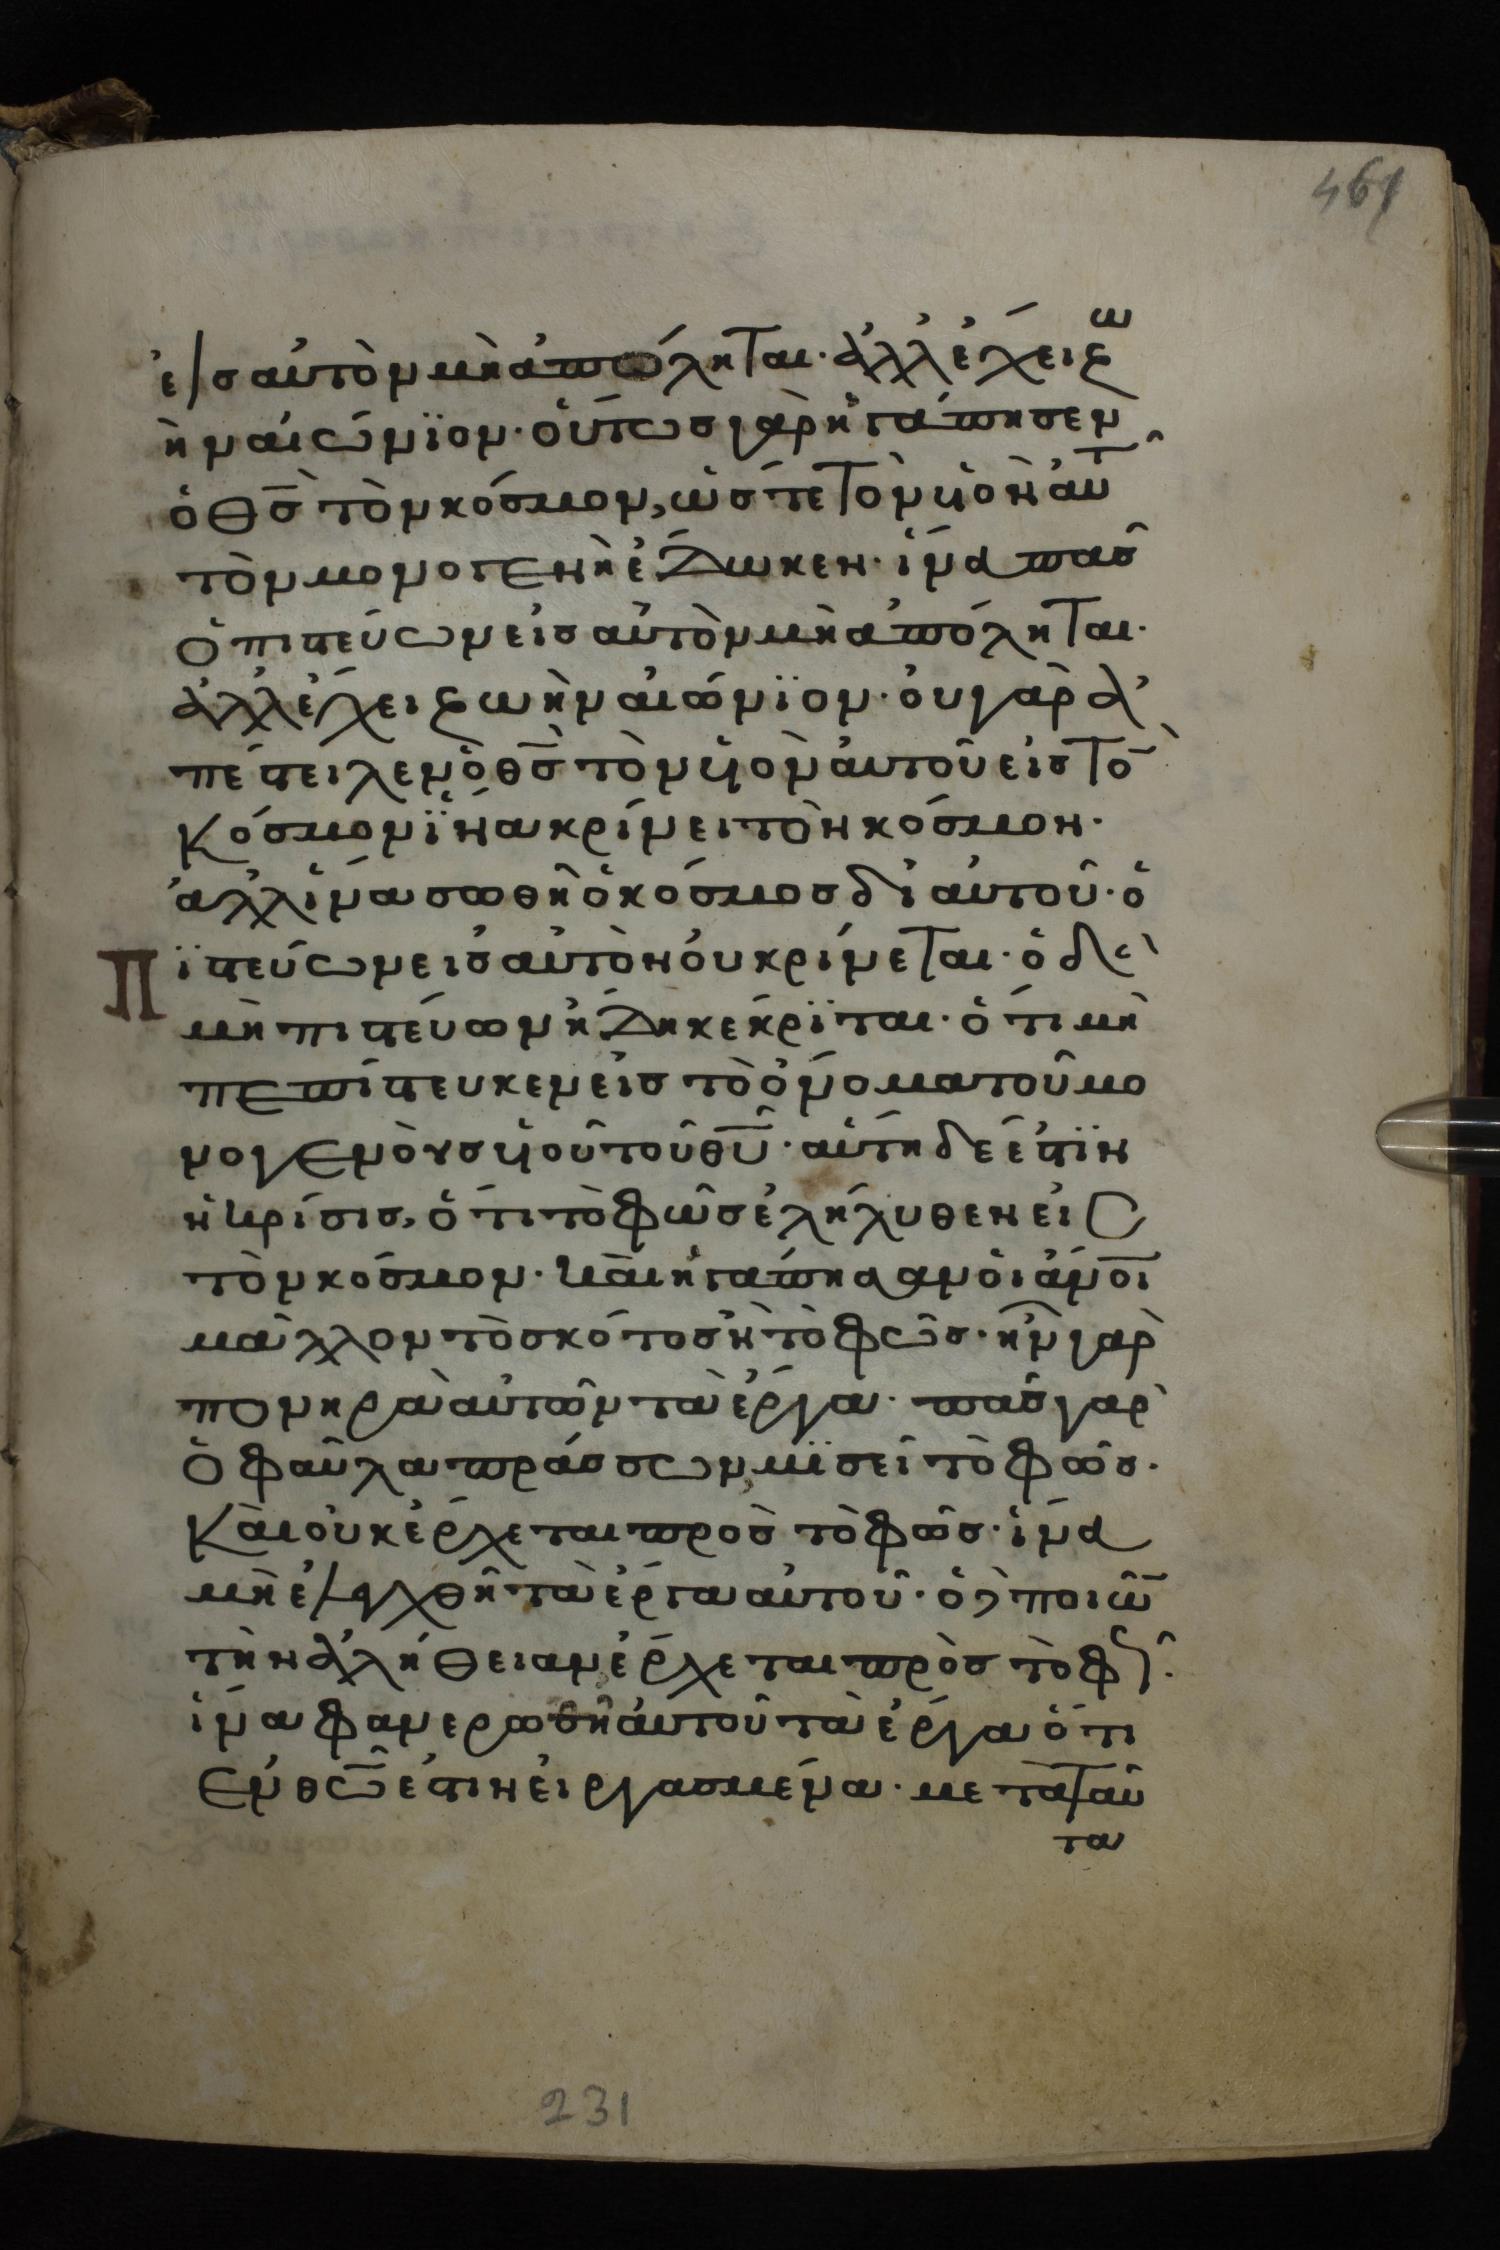 461
εἰς αὐτὸν μὴ ἀπώληται· ἀλλ ἔχει ζω
ὴν αἰώνϊον· οὕτως γὰρ ἠγάπησεν
ὁ θς̅ τὸν κόσμον, ὥστε τὸν υἱὸν αὐτ̑
τὸν μονογενὴ ἔδωκεν· ἵνα πᾶσ
ὁ πιστεύων εἰς αὐτὸν μὴ ἀπόληται·
ἀλλ ἔχει ζωὴν αἰώνϊον· ὀυ γὰρ ἀ
πέστειλεν ὁ θς̅ τὸν υἱὸν ἀυτοῦ εἰς τὸ̅
κόσμον ἵ̈να κρίνει τὸν κόσμον·
ἀλλ ἵνα σωθῆ ὁ κόσμος δι ἀυτοῦ· ὁ
Πϊστεύων εἰς αὐτὸν ὀυ κρίνεται· ὁ δὲ
μὴ πιστεύων ἤδη κέκρϊται· ὅτι μὴ
πεπίστευκεν εἰς τὸ ὄνομα τοῦ μο
νογενὸυς υἱοῦ τοῦ θυ̅· αὕτη δέ ἐστϊν
ἡ κρίσις, ὅτι τὸ φῶς ἐλήλυθεν εἰς
τὸν κόσμον· κὰι ἠγάπησαν ὁι ἄνο̅ι
μᾶλλον τὸ σκότος ἢ τὸ φῶς· ἦν γὰρ
πονηρὰ αὐτῶν τὰ ἔργα· πᾶς γὰρ
ὁ φαῦλα πράσσων, μϊσεῖ τὸ φῶς·
κὰι οὐκ ἔρχεται προσ τὸ φῶς· ἵνα
μὴ ἐλεγχθῆ τὰ ἔργα αὐτοῦ· ὁ δὲ ποιῶ̅
τὴν ἀλήθειαν ἔρχεται πρὸς τὸ φῶς·
ἵνα φανερωθῆ ἀυτοῦ τὰ ἔργα ὅτι
ἐν θῶ̅ ἐστιν εἰργασμένα· μετὰ ταῦ
τα
231